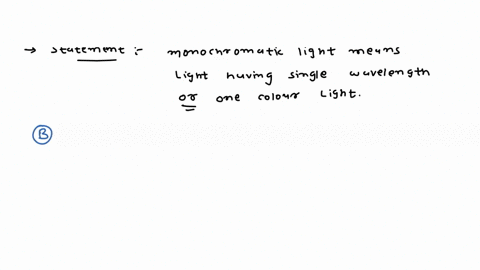 → statement :- monochromatic light means
light having single wavelength
or one colour light.
B